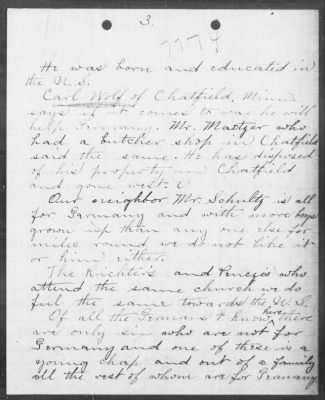 3.
7774
He was born and educated in
the U.S.
Carl Wolf of Chatfield, Minn
says if it comes to war he will
help Germany. Mr. Matzer who
had a butcher shop in Chatfield
said the same. He has disposed
of his property in Chatfield
and gone west.
Our neighbor Mr. Schultz is all
for Germany and with more boys
grown up than any one else for
miles round we do not like it
or him either.
The and who
attend the same church we do
feel the same towards the U.S.
Of all the Germans I know here there
are only six who are not for
Germany and one of these is a
young chap and out of a family
all the rest of whom are for Germany